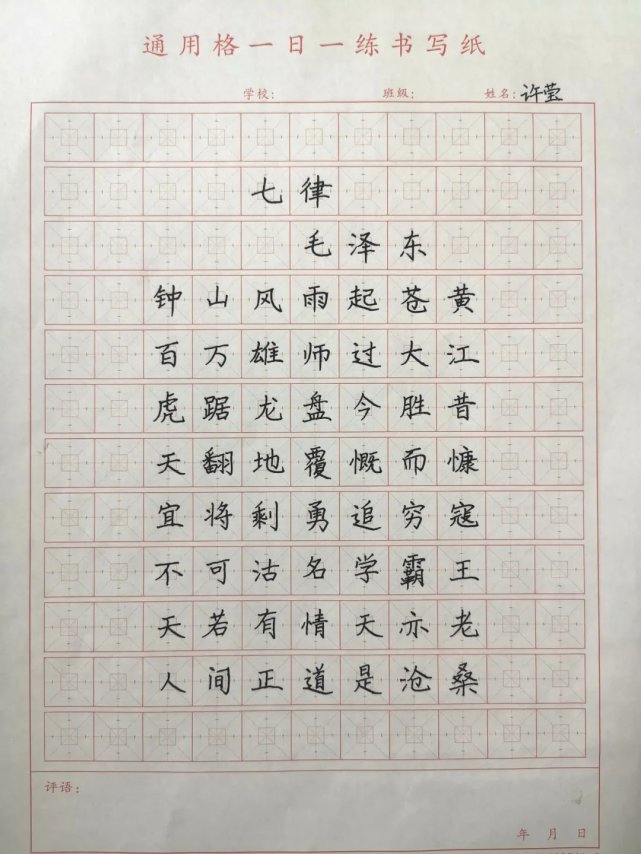 通用格一日一练书写纸
学校: 班级: 姓名: 许莹
七律
毛泽东
钟山风雨起苍黄
百万雄师过大江
虎踞龙盘今胜昔
天翻地覆慨而慷
宜将剩勇追穷寇
不可沽名学霸王
天若有情天亦老
人间正道是沧桑
评语:
年 月 日